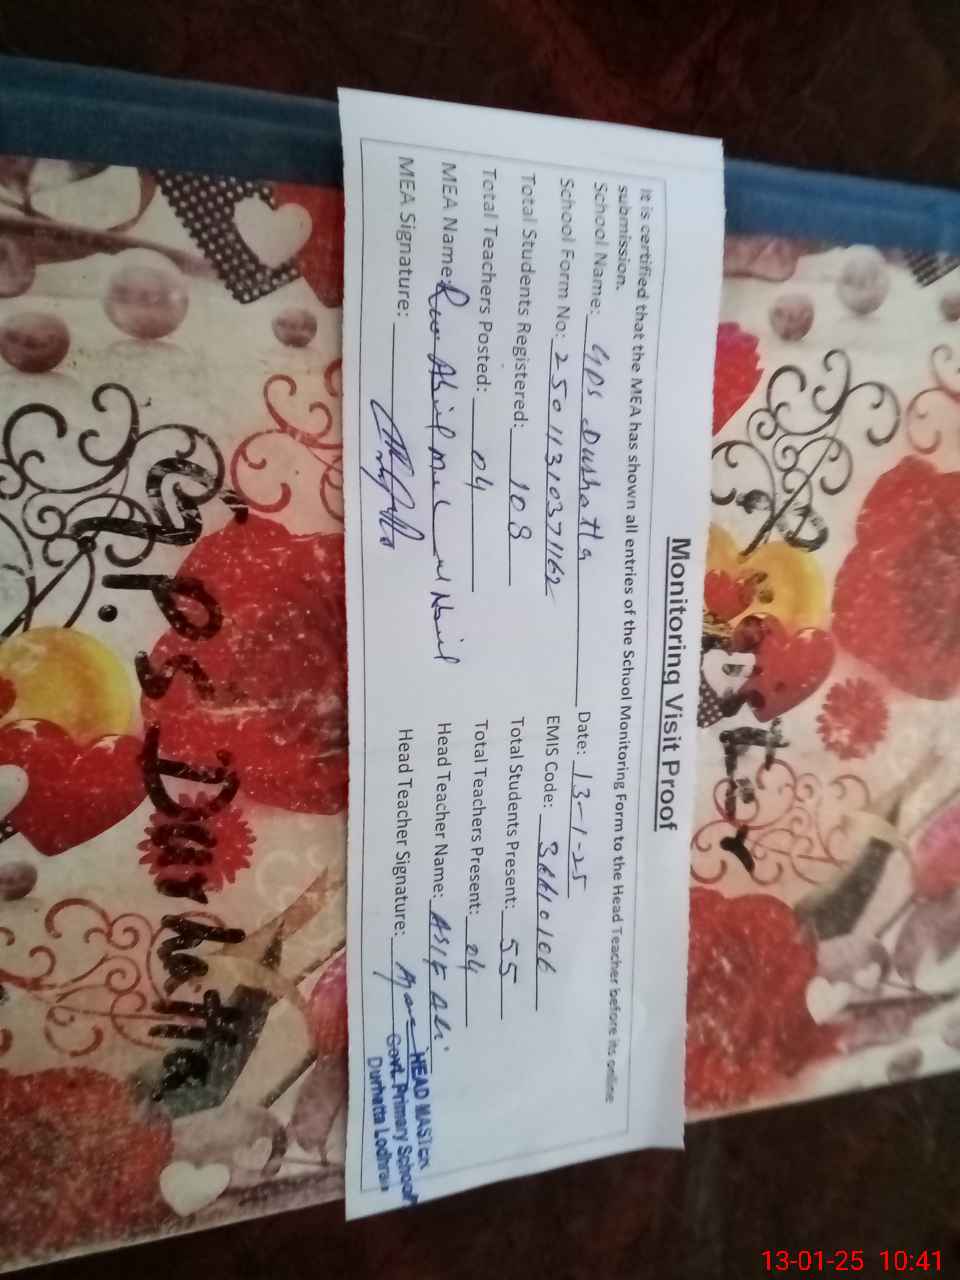 Monitoring Visit Proof
It is certified that the MEA has shown all entries of the School Monitoring Form to the Head Teacher before its online
submission.
School Name: GPS Durhatta Date: 13-1-25
School Form No: 25011310371162 EMIS Code:
Total Students Registered: 108 Total Students Present: 55
Total Teachers Posted: 04 Total Teachers Present: 04
MEA Name: Head Teacher Name: ASIF Ali
MEA Signature: Head Teacher Signature:
HEAD MASTER
Govt. Primary School
Durhatta Lodhran
G.P.S Durhatta
13-01-25 10:41